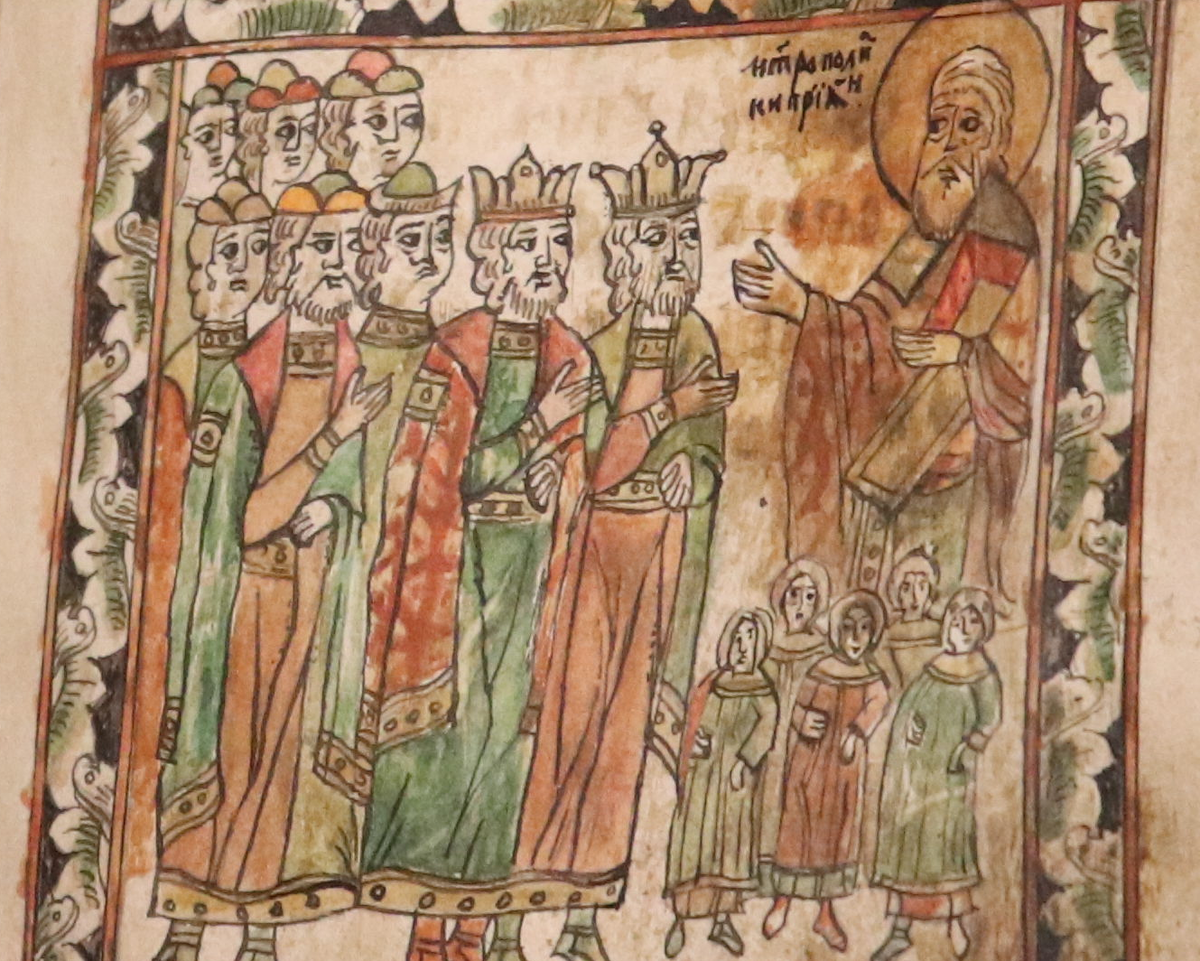 митрополи҃
кипріа҃н